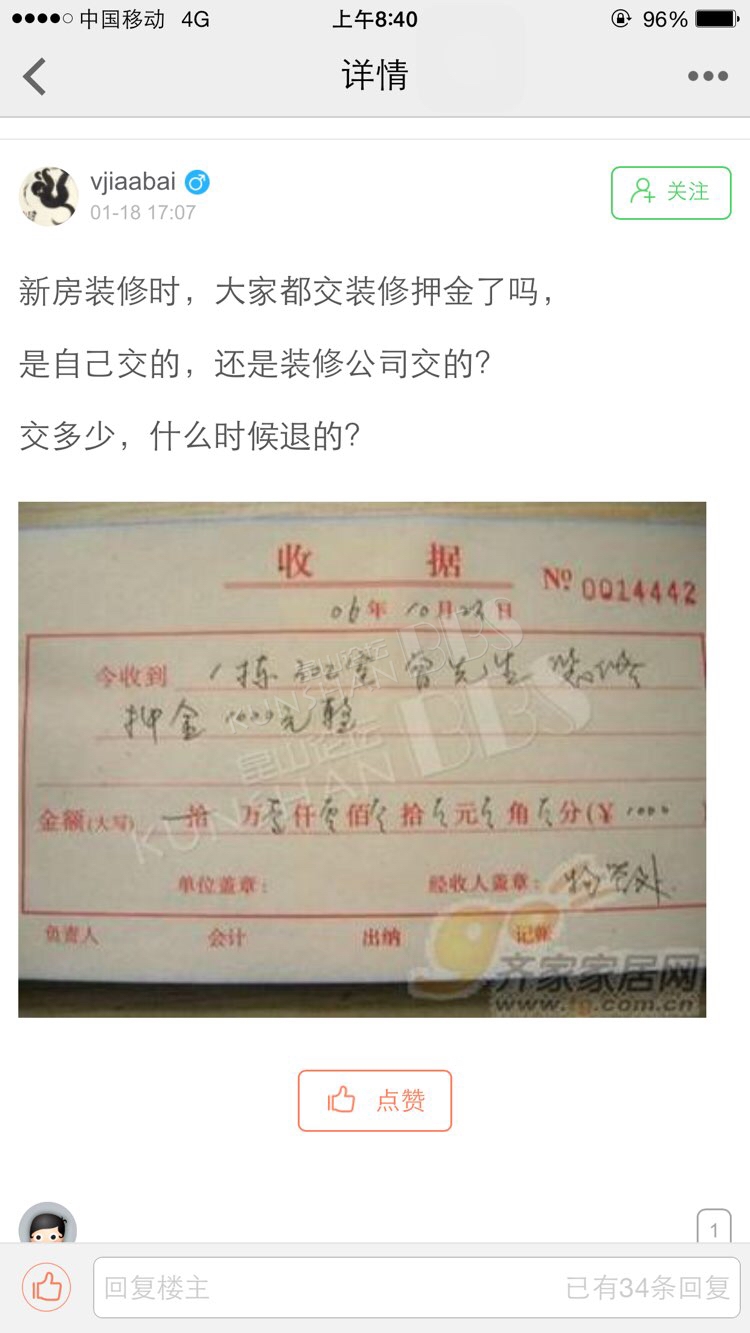 中国移动 4G 上午8:40 96%
详情
vjiaabai
01-18 17:07
关注
新房装修时，大家都交装修押金了吗，
是自己交的，还是装修公司交的？
交多少，什么时候退的？
收 据
№ 0014442
06年 10月23日
今收到 1栋302室 曾先生 装修
押金 1000元整
昆山论坛
KUNSHAN BBS
昆山论坛
KUNSHAN BBS
金额(大写) 拾 万 仟 佰 拾 元 角 分(￥1000 )
单位盖章： 经收人盖章：物管处
负责人 会计 出纳 记账
齐家家居网
www.tg.com.cn
点赞
1
回复楼主 已有34条回复